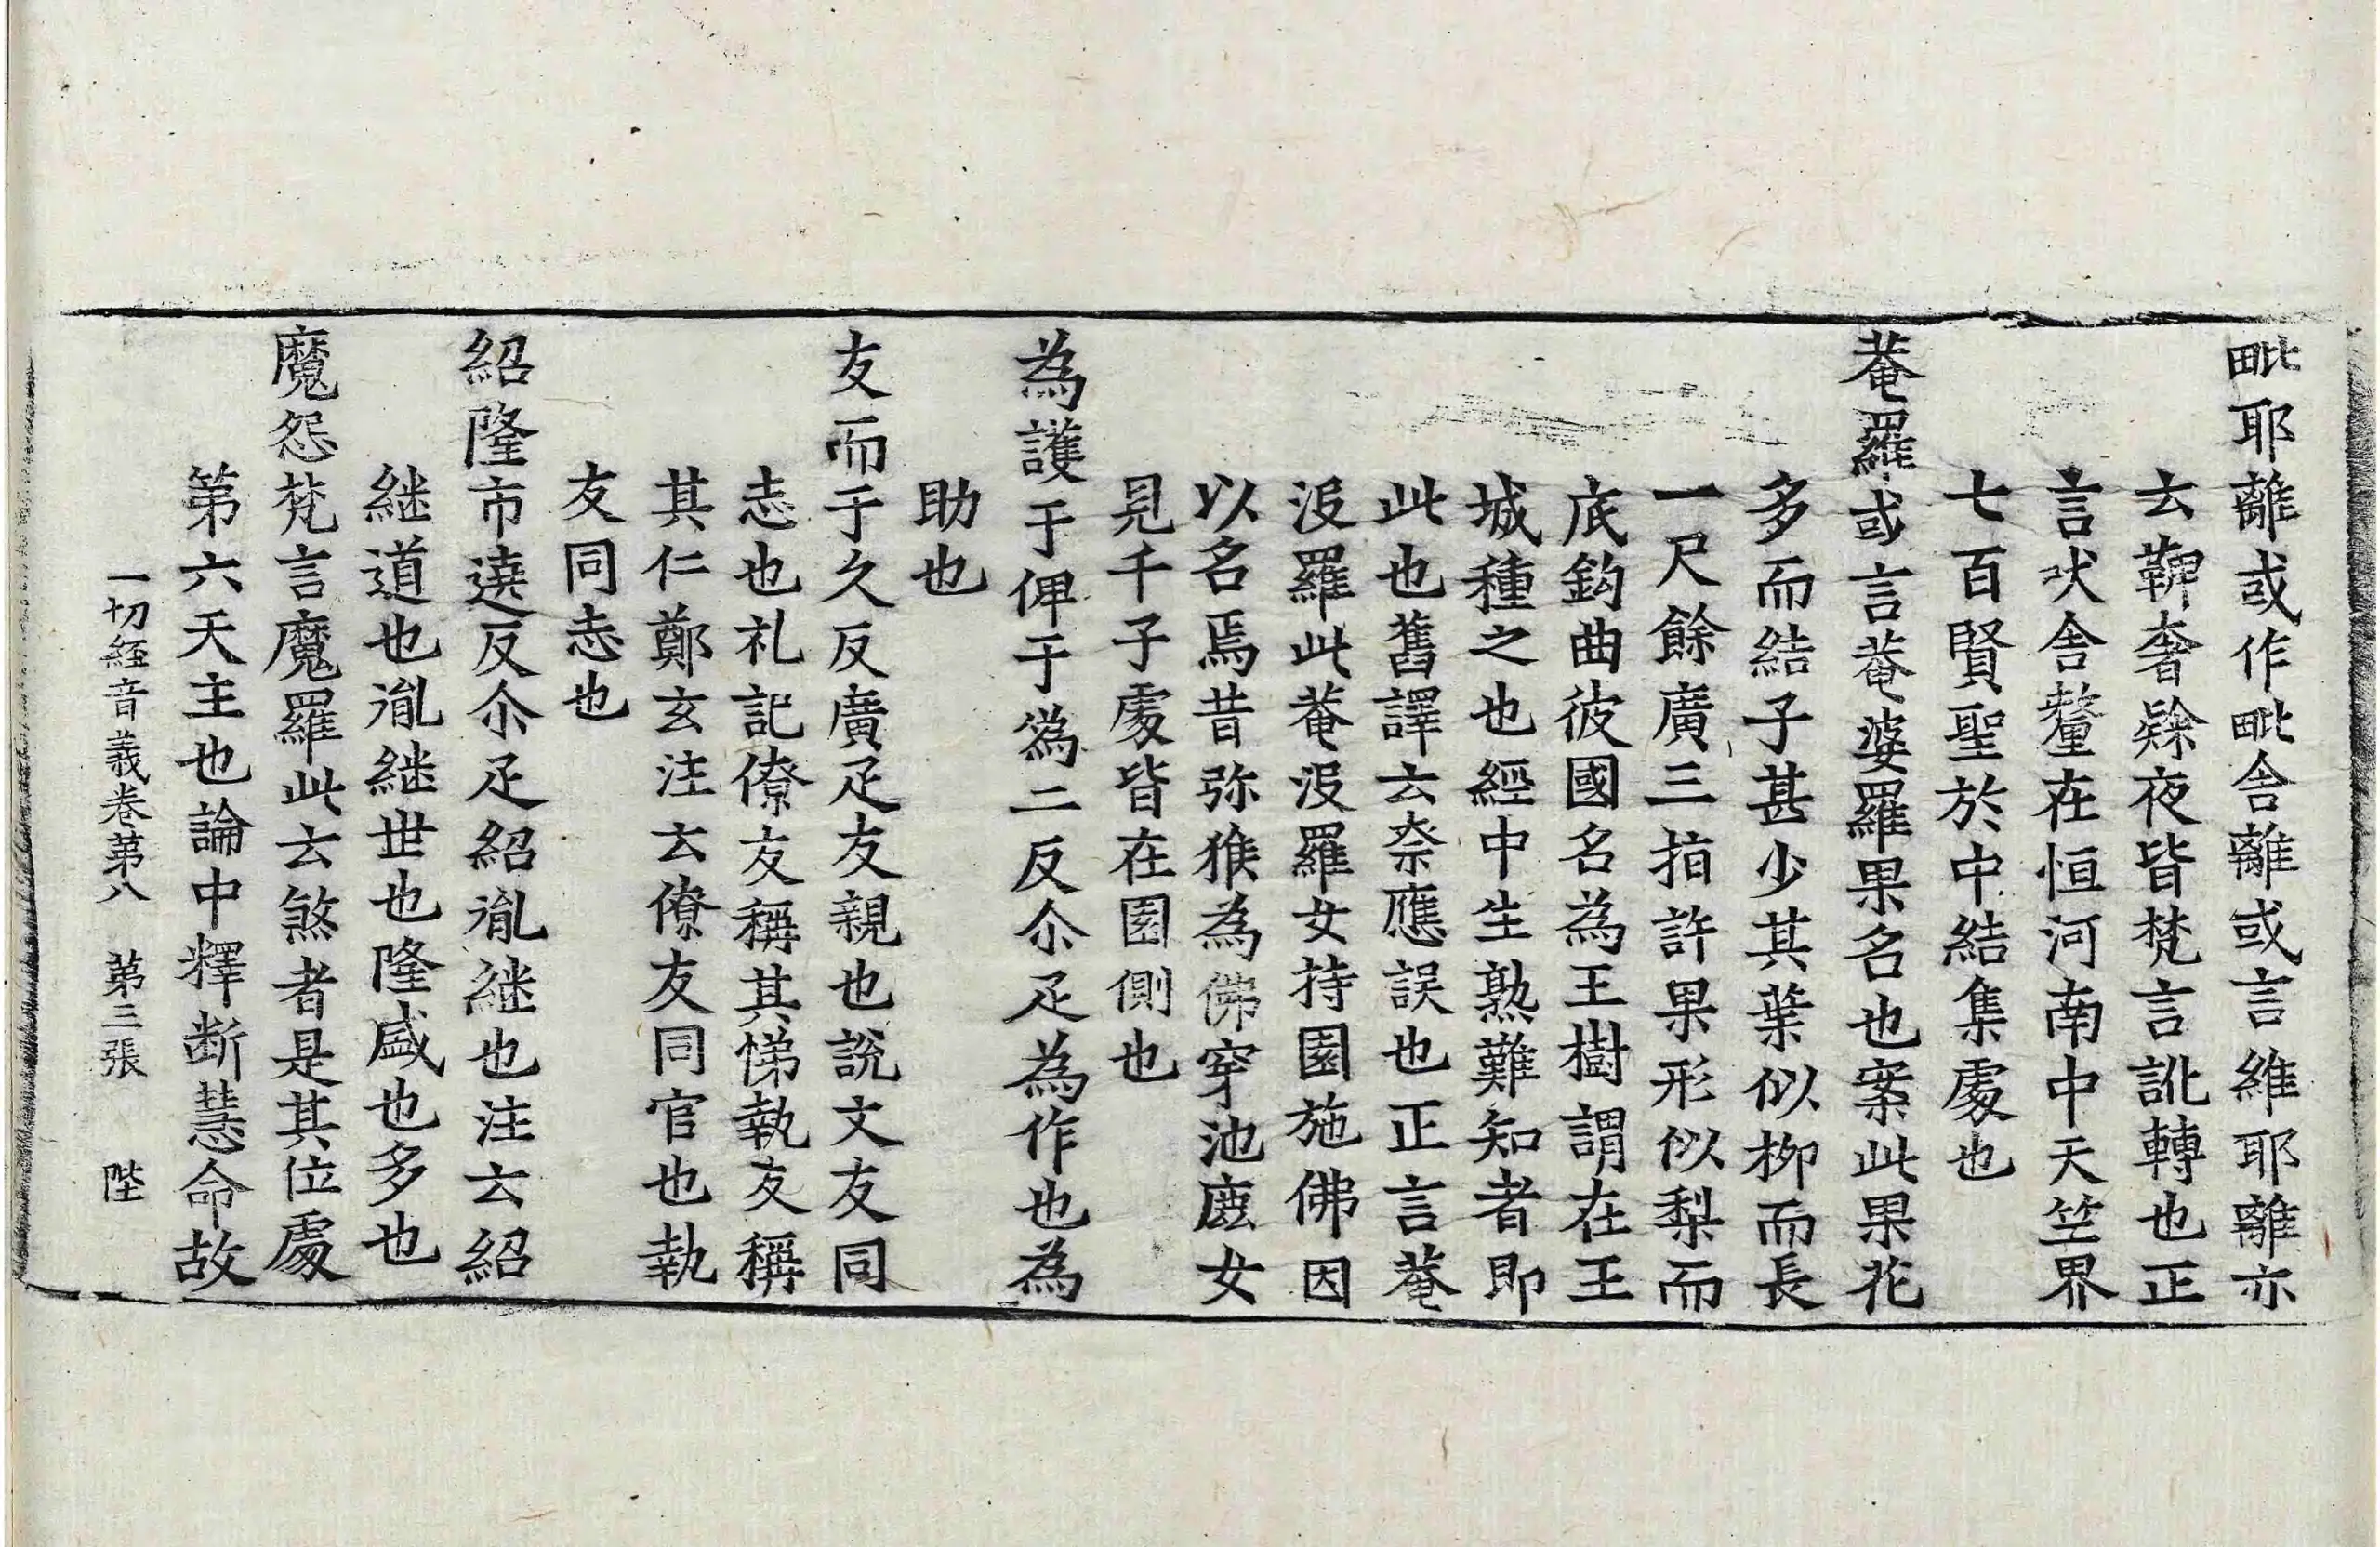 毗耶離或作毗舍離或言維耶離亦
云鞞奢𨽻夜皆梵言訛轉也正
言吠舍釐在恒河南中天竺界
七百賢聖於中結集處也
菴羅或言菴婆羅果名也案此果花
多而結子甚少其葉似柳而長
一尺餘廣三指許果形似梨而
底鈎曲彼國名為王樹謂在王
城種之也經中生熟難知者即
此也舊譯云柰應誤也正言菴
沒羅此菴沒羅女持園施佛因
以名焉昔弥猴為佛穿池鹿女
見千子處皆在園側也
為護于俾于為二反尒疋為作也為
助也
友而于久反廣疋友親也說文友同
志也礼記僚友稱其悌執友稱
其仁鄭玄注云僚友同官也執
友同志也
紹隆市遶反尒疋紹胤継也注云紹
継道也胤継世也隆盛也多也
魔怨梵言魔羅此云煞者是其位處
第六天主也論中釋断慧命故
一切經音義卷第八　第三張　陛